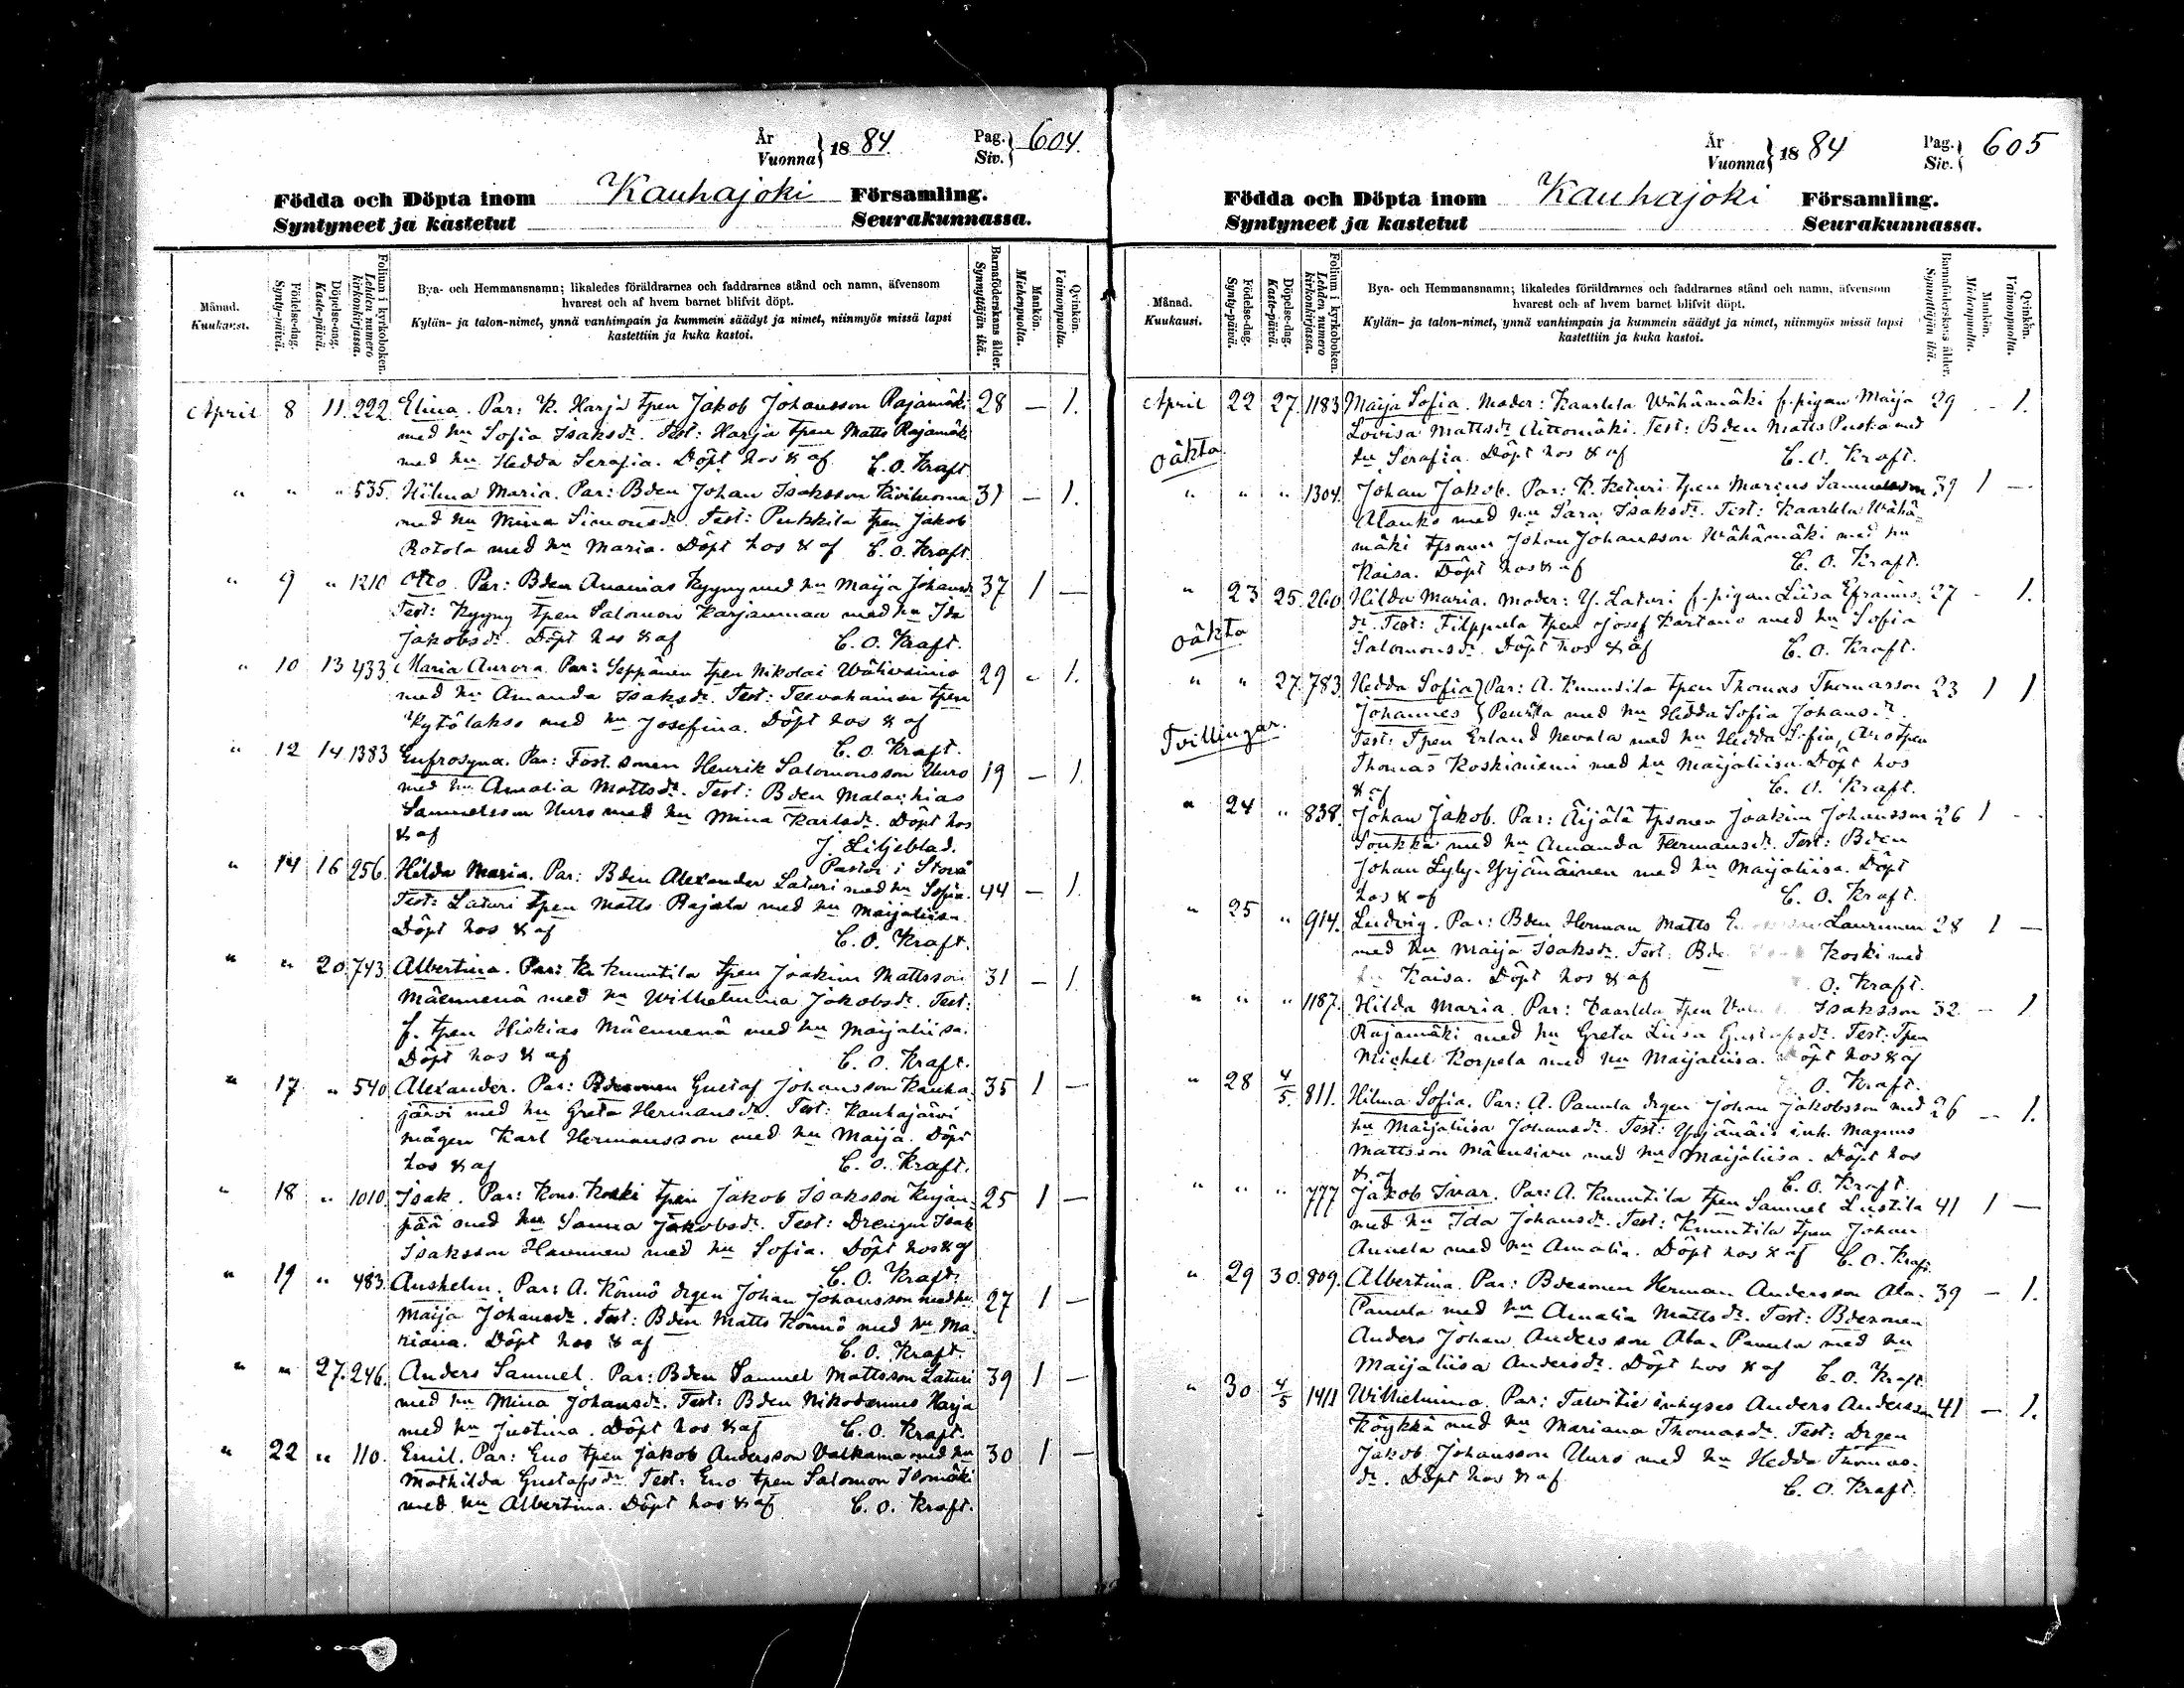 År
Vuonna } 1884. Pag. Siv. } 604.
Födda och Döpta inom Kauhajoki Församling.
Syntyneet ja kastetut Seurakunnassa.
Månad. Kuukausi.
Födelse-dag. Synty-päivä.
Döpelse-dag. Kaste-päivä.
Folium i kyrkoboken. Lehden numero kirkonkirjassa.
Bya- och Hemmansnamn; likaledes föräldrarnes och faddrarnes stånd och namn, äfvensom
hvarest och af hvem barnet blifvit döpt.
Kylän- ja talon-nimet, ynnä vanhimpain ja kummein säädyt ja nimet, niinmyös missä lapsi
kastettiin ja kuka kastoi.
Barnaföderskans ålder. Synnyttäjän ikä.
Mankön. Miehenpuolia.
Qvinkön. Vaimonpuolia.
April 8 11. 222. Elina. Par: K. Harja tpen Jakob Johansson Rajamäki 28 — 1.
med hu Sofia Isaksdr. Test: Harja tpen Matts Rajamäki
med hu Hedda Serafia. Döpt hos & af C. O. Kraft
" " " 535. Hilma Maria. Par: Bden Johan Isaksson Kiviluoma 31 — 1.
med hu Mina Simonsdr. Test: Pukkila tpen Jakob
Rotola med hu Maria. Döpt hos & af C. O. Kraft
" 9 " 1210 Otto. Par: Bden Ananias Kyyny med hu Maija Johansdr 37 1 —
Test: Kyyny tpen Salomon Karjanmaa med hu Ida
Jakobsdr. Döpt hos & af C. O. Kraft.
" 10 13 433. Maria Aurora. Par: Seppänen tpen Nikolai Wälivainio 29 - 1.
med hu Amanda Isaksdr. Test: Teevahainen tpen
Kytölakso med hu Josefina. Döpt hos & af
C. O. Kraft.
" 12 14. 1383 Eufrosyna. Par: Fost. sonen Henrik Salomonsson Uuro 19 — 1.
med hu Amalia Mattsdr. Test: Bden Malachias
Samuelsson Uuro med hu Mina Karlsdr. Döpt hos
& af J. Liljeblad.
Pastor i Storå
" 14 16 256. Hilda Maria. Par: Bden Alexander Laturi med hu Sofia. 44 — 1.
Test: Laturi tpen Matts Rajala med hu Maijaliisa.
Döpt hos & af C. O. Kraft.
" " 20. 743. Albertina. Par: Kr. Knuutila tpen Joakim Mattsson 31 — 1.
Mäenmenä med hu Wilhelmina Jakobsdr. Test:
f. tpen Hiskias Mäenmenä med hu Maijaliisa.
Döpt hos & af C. O. Kraft.
" 17 " 540 Alexander. Par: Bdesonen Gustaf Johansson Kauha- 35 1 —
järvi med hu Greta Hermansdr. Test: Kauhajärvi
mågen Karl Hermansson med hu Maija. Döpt
hos & af C. O. Kraft.
" 18 " 1010. Isak. Par: Kons. Koski tpen Jakob Isaksson Kirjan- 25 1 —
pää med hu Sanna Jakobsdr. Test: Drengen Isak
Isaksson Havunen med hu Sofia. Döpt hos & af
C. O. Kraft.
" 19 " 483. Anshelm. Par: A. Könnö drgen Johan Johansson med hu 27 1 —
Maija Johansdr. Test: Bden Matts Könnö med hu Ma-
riana. Döpt hos & af C. O. Kraft.
" " 27. 246. Anders Samuel. Par: Bden Samuel Mattsson Laturi 39 1 —
med hu Mina Johansdr. Test: Bden Nikodemus Harja
med hu Justina. Döpt hos & af C. O. Kraft.
" 22 " 110. Emil. Par: Eno tpen Jakob Andersson Valkama med hu 30 1 —
Mathilda Gustafsdr. Test: Eno tpen Salomon Isomäki
med hu Albertina. Döpt hos & af C. O. Kraft.
År
Vuonna } 1884 Pag. Siv. } 605
Födda och Döpta inom Kauhajoki Församling.
Syntyneet ja kastetut Seurakunnassa.
Månad. Kuukausi.
Födelse-dag. Synty-päivä.
Döpelse-dag. Kaste-päivä.
Folium i kyrkoboken. Lehden numero kirkonkirjassa.
Bya- och Hemmansnamn; likaledes föräldrarnes och faddrarnes stånd och namn, äfvensom
hvarest och af hvem barnet blifvit döpt.
Kylän- ja talon-nimet, ynnä vanhimpain ja kummein säädyt ja nimet, niinmyös missä lapsi
kastettiin ja kuka kastoi.
Barnaföderskans ålder. Synnyttäjän ikä.
Mankön. Miehenpuolia.
Qvinkön. Vaimonpuolia.
April 22 27. 1183 Maija Sofia. Moder: Kaarlela Wähämäki f. pigan Maija 29 - 1.
Lovisa Mattsdr Aittomäki. Test: Bden Matts Puska med
oäkta hu Serafia. Döpt hos & af C. O. Kraft.
" " " 1304. Johan Jakob. Par: K. Keturi tpen Marius Samuelsson 39 1 —
Alanko med hu Sara Isaksdr. Test: Kaarlela Wähä-
mäki tpsonen Johan Johansson Wähämäki med hu
Kaisa. Döpt hos & af C. O. Kraft.
" 23 25. 260 Hilda Maria. Moder: Y. Laturi f. pigan Liisa Efraims- 27 - 1.
oäkta dr. Test: Filppula tpen Josef Kartano med hu Sofia
Salomonsdr. Döpt hos & af C. O. Kraft.
" " 27. 783. Hedda Sofia } Par: A. Knuutila tpen Thomas Thomasson 23 1 1
Johannes } Penttla med hu Hedda Sofia Johansdr.
Tvillingar. Test: Tpen Erland Nevala med hu Hedda Sofia, Aro tpen
Thomas Koskiniemi med hu Maijaliisa. Döpt hos
& af C. O. Kraft.
" 24 " 838. Johan Jakob. Par: Äijälä tpsonen Joakim Johansson 26 1 -
Soukka med hu Amanda Hermansdr. Test: Bden
Johan Lyly-Yrjänäinen med hu Maijaliisa. Döpt
hos & af C. O. Kraft.
" 25 " 914. Ludvig. Par: Bden Herman Matts Laurunen 28 1 —
med hu Maija Isaksdr. Test: Koski med
hu Kaisa. Döpt hos & af O. Kraft.
" " " 1187. Hilda Maria. Par: Kaarlela tpen Isaksson 32 — 1
Rajamäki med hu Greta Liisa Gustafsdr. Test: Tpen
Michel Korpela med hu Maijaliisa. Döpt hos & af
O. Kraft.
" 28 4/5. 811. Hilma Sofia. Par: A. Panula drgen Johan Jakobsson med 26 — 1.
hu Maijaliisa Johansdr. Test: Yrjänäis inh. Magnus
Mattsson Mäensivu med hu Maijaliisa. Döpt hos
& af C. O. Kraft.
" " " 777 Jakob Ivar. Par: A. Knuutila tpen Samuel Lustila 41 1 —
med hu Ida Johansdr. Test: Knuutila tpen Johan
Annela med hu Amalia. Döpt hos & af C. O. Kraft.
" 29 30. 809. Albertina. Par: Bdesonen Herman Andersson Ala- 39 — 1.
Panula med hu Amalia Mattsdr. Test: Bdesonen
Anders Johan Andersson Ala-Panula med hu
Maijaliisa Andersdr. Döpt hos & af C. O. Kraft.
" 30 4/5 1411 Wilhelmina. Par: Tawitie inhyses Anders Andersson 41 — 1.
Köykkä med hu Mariana Thomasdr. Test: Drgen
Jakob Johansson Uuro med hu Hedda Thomas-
dr. Döpt hos & af C. O. Kraft.